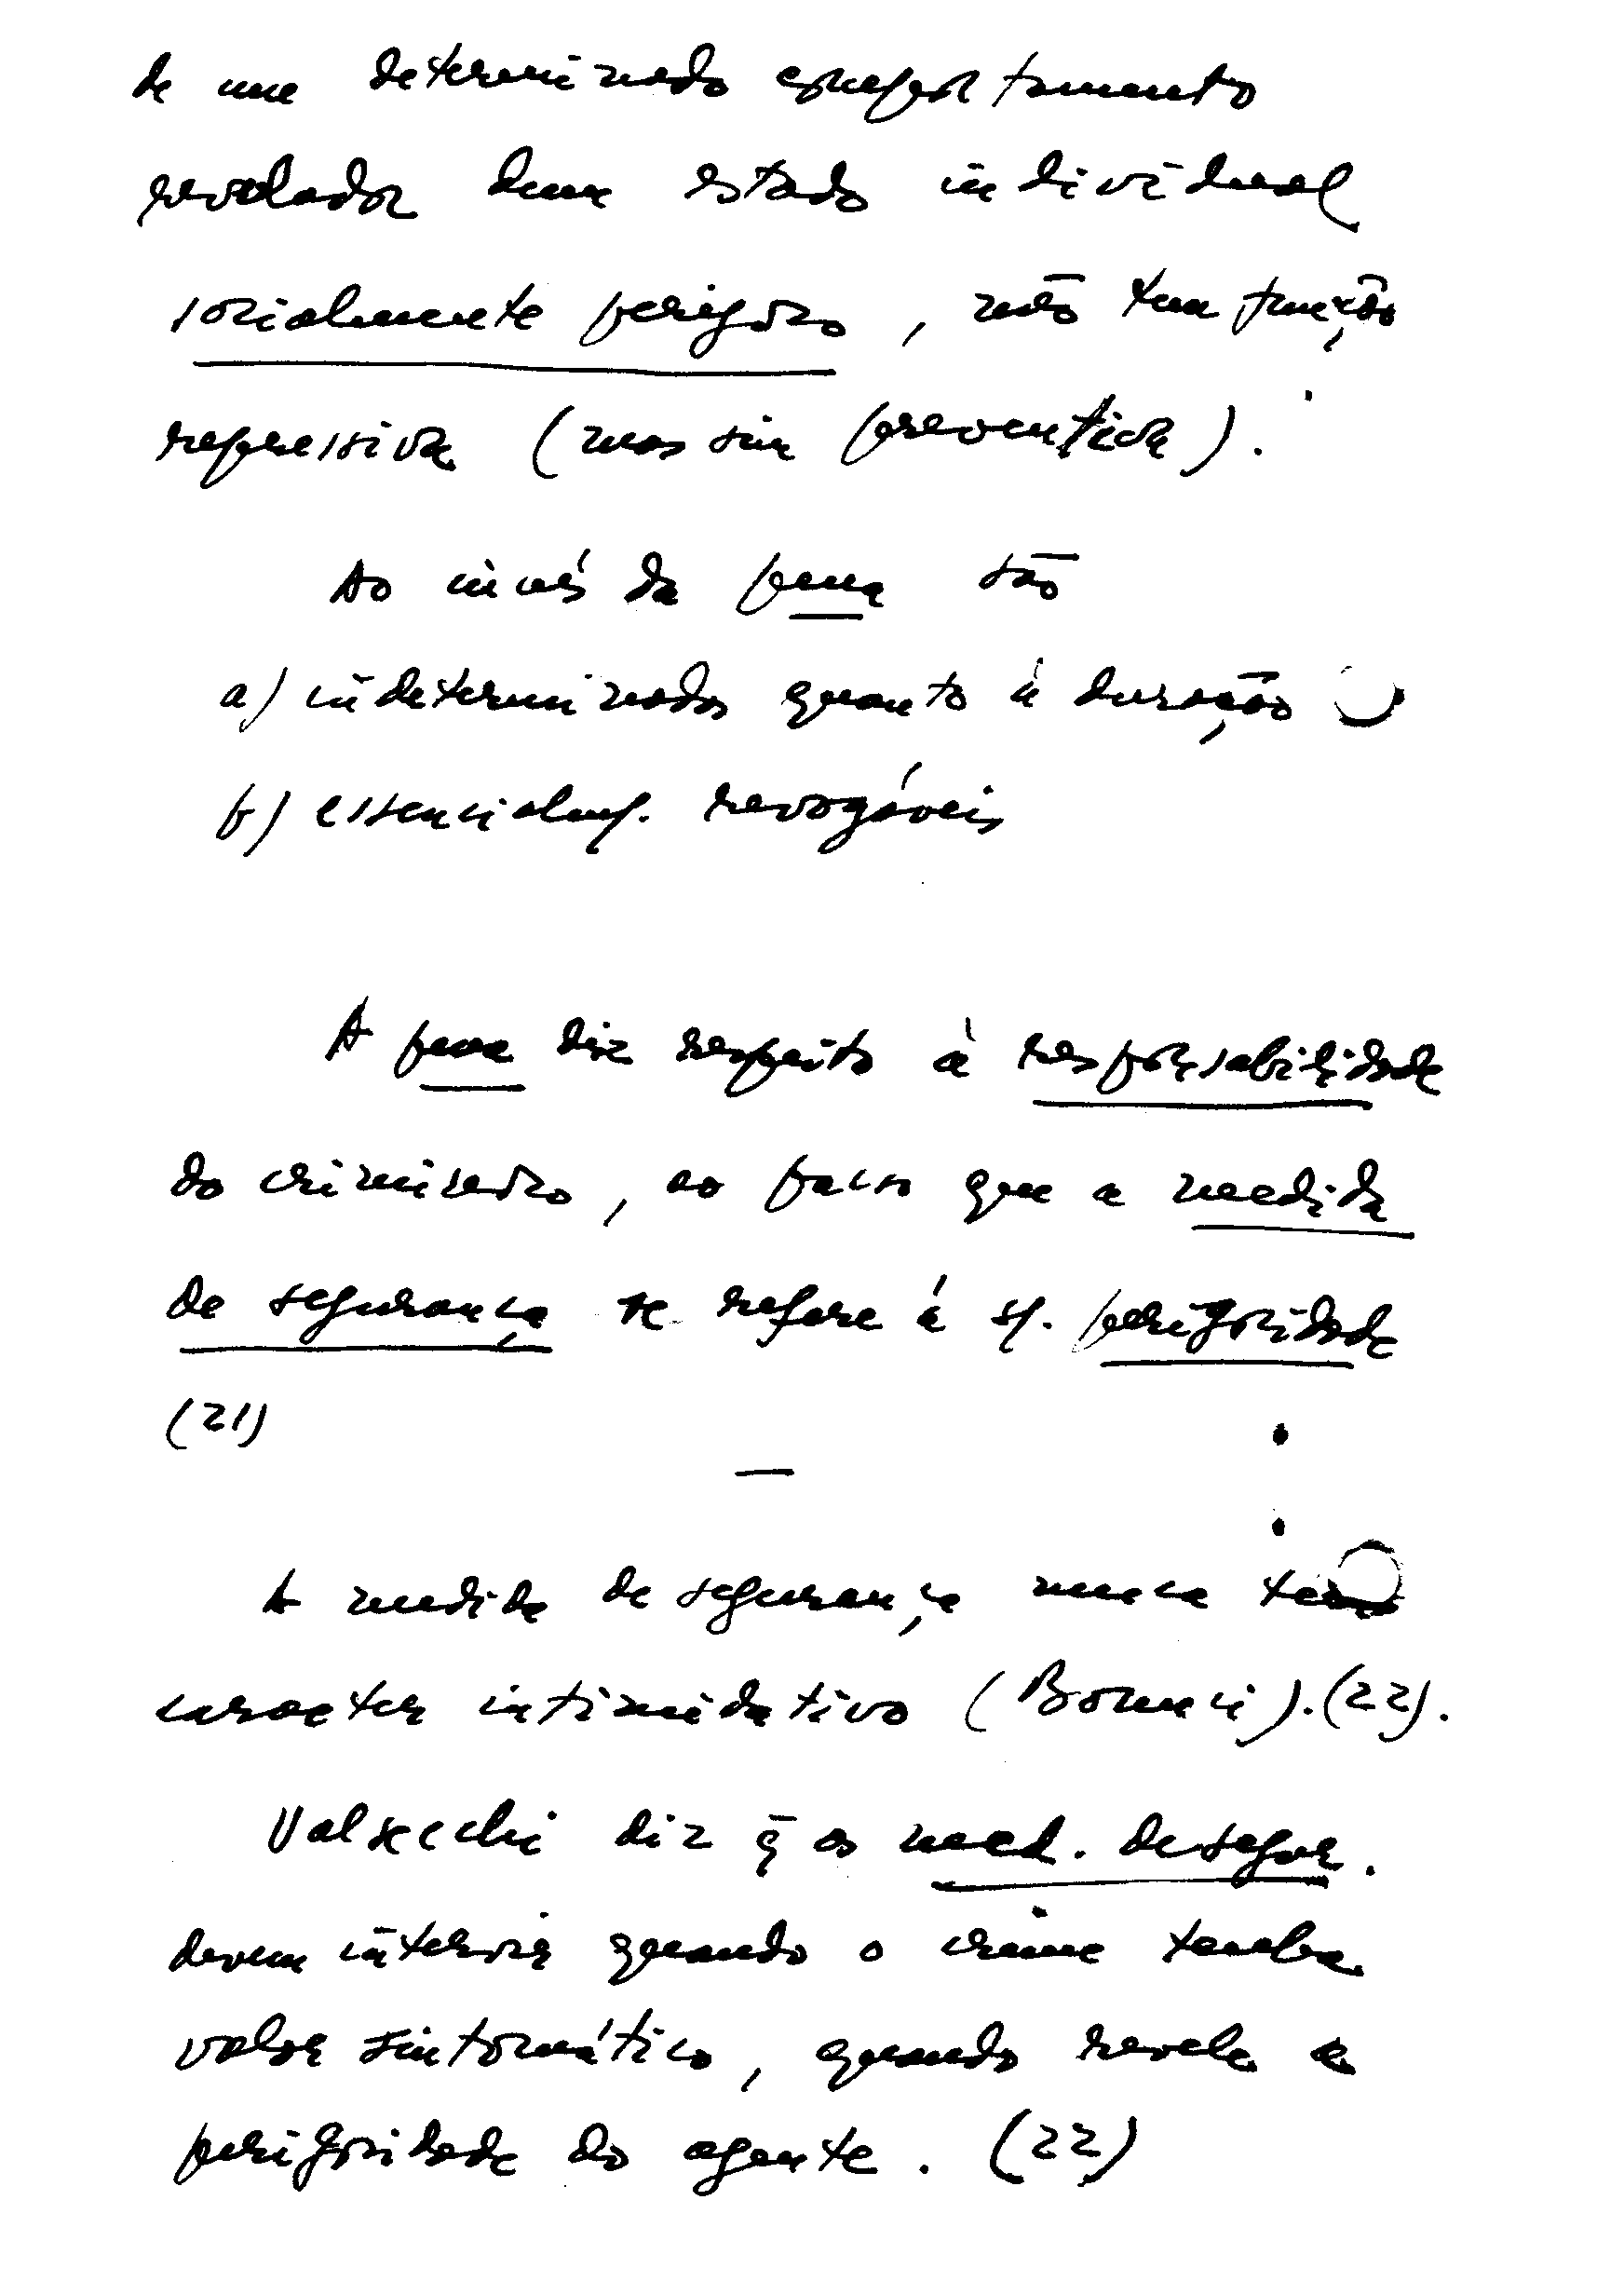 de um determinado comportamento
revelador dum estado individual
socialmente perigoso, não tem função
repressiva (mas sim preventiva).
Ao invés da pena são
a) indeterminados quanto à duração
b) essencialmp. revogáveis
A pena diz respeito à responsabilidade
do criminoso, ao passo que a medida
de segurança se refere à sp. perigosidade
(21)
—
A medida de segurança nunca tem
caracter intimidativo (Bonucci). (22).
Valsecchi diz q̃ as med. de segur.
devem intervir quando o crime tenha
valor sintomático, quando revela a
perigosidade do agente. (22)